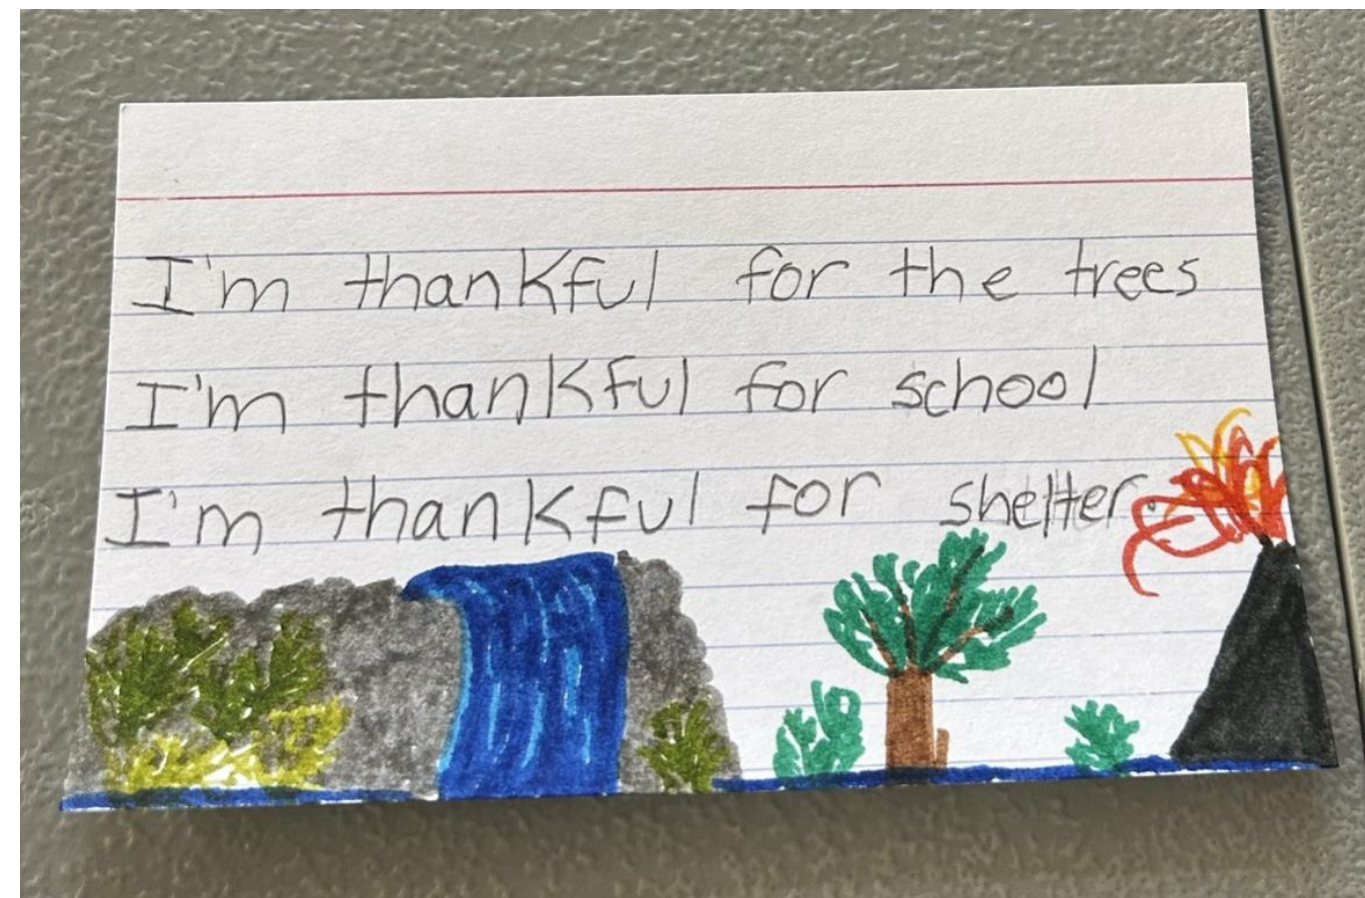 I'm thankful for the trees
I'm thankful for school
I'm thankful for shelter.